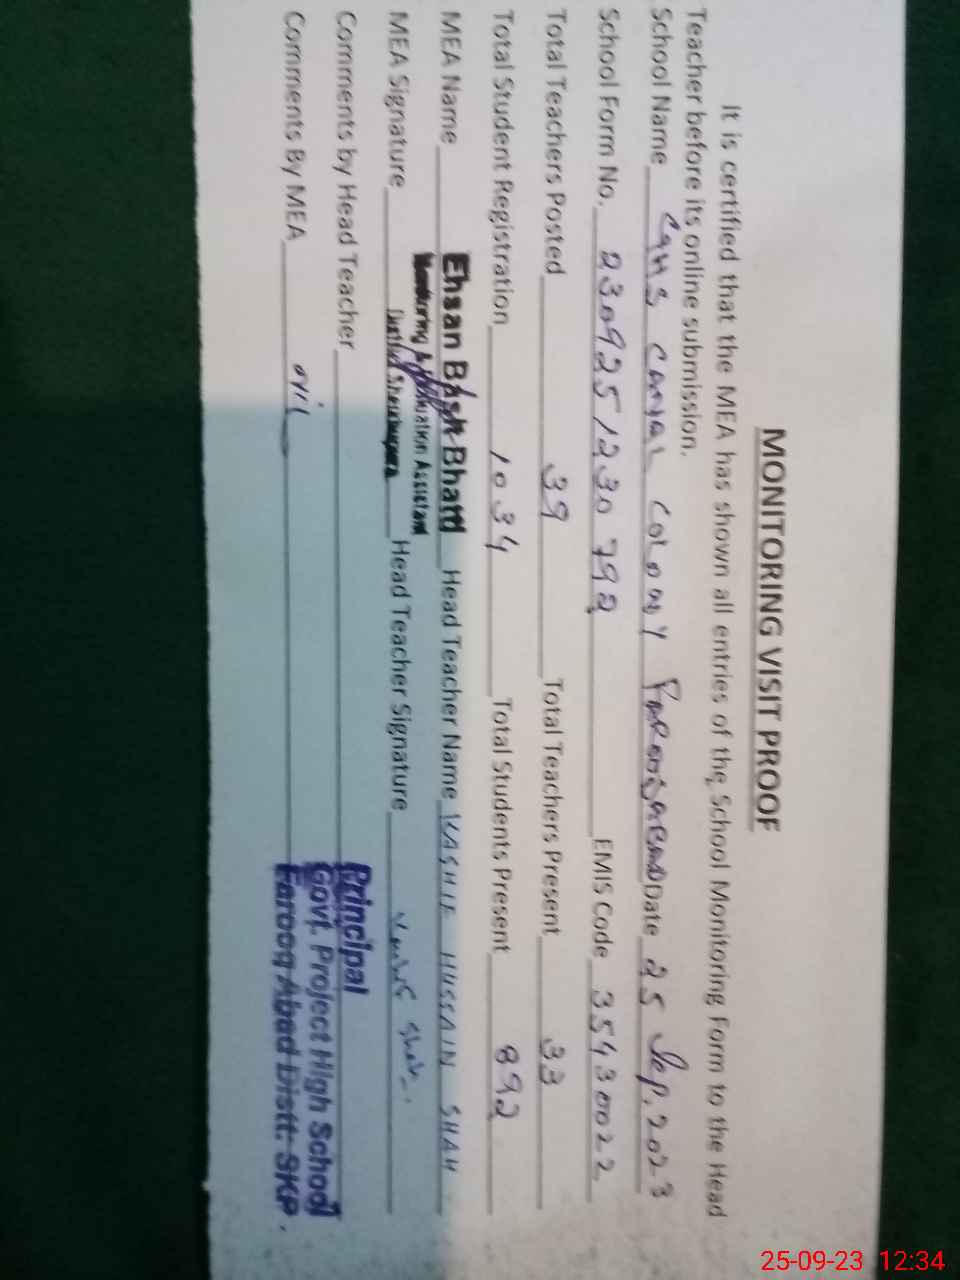 MONITORING VISIT PROOF
It is certified that the MEA has shown all entries of the School Monitoring Form to the Head
Teacher before its online submission.
School Name GHS CANAL COLONY FAROOQABAD Date 25 Sep, 2023
School Form No. 2309251230792 EMIS Code 35430022
Total Teachers Posted 39 Total Teachers Present 33
Total Student Registration 1034 Total Students Present 892
MEA Name Ehsan Bhatti Head Teacher Name KASHIF HUSSAIN SHAH
Monitoring & Evaluation Assistant
MEA Signature District Sheikhupura Head Teacher Signature
Comments by Head Teacher Principal
Govt. Project High School
Comments By MEA Nil Farooq Abad Distt. SKP.
25-09-23 12:34